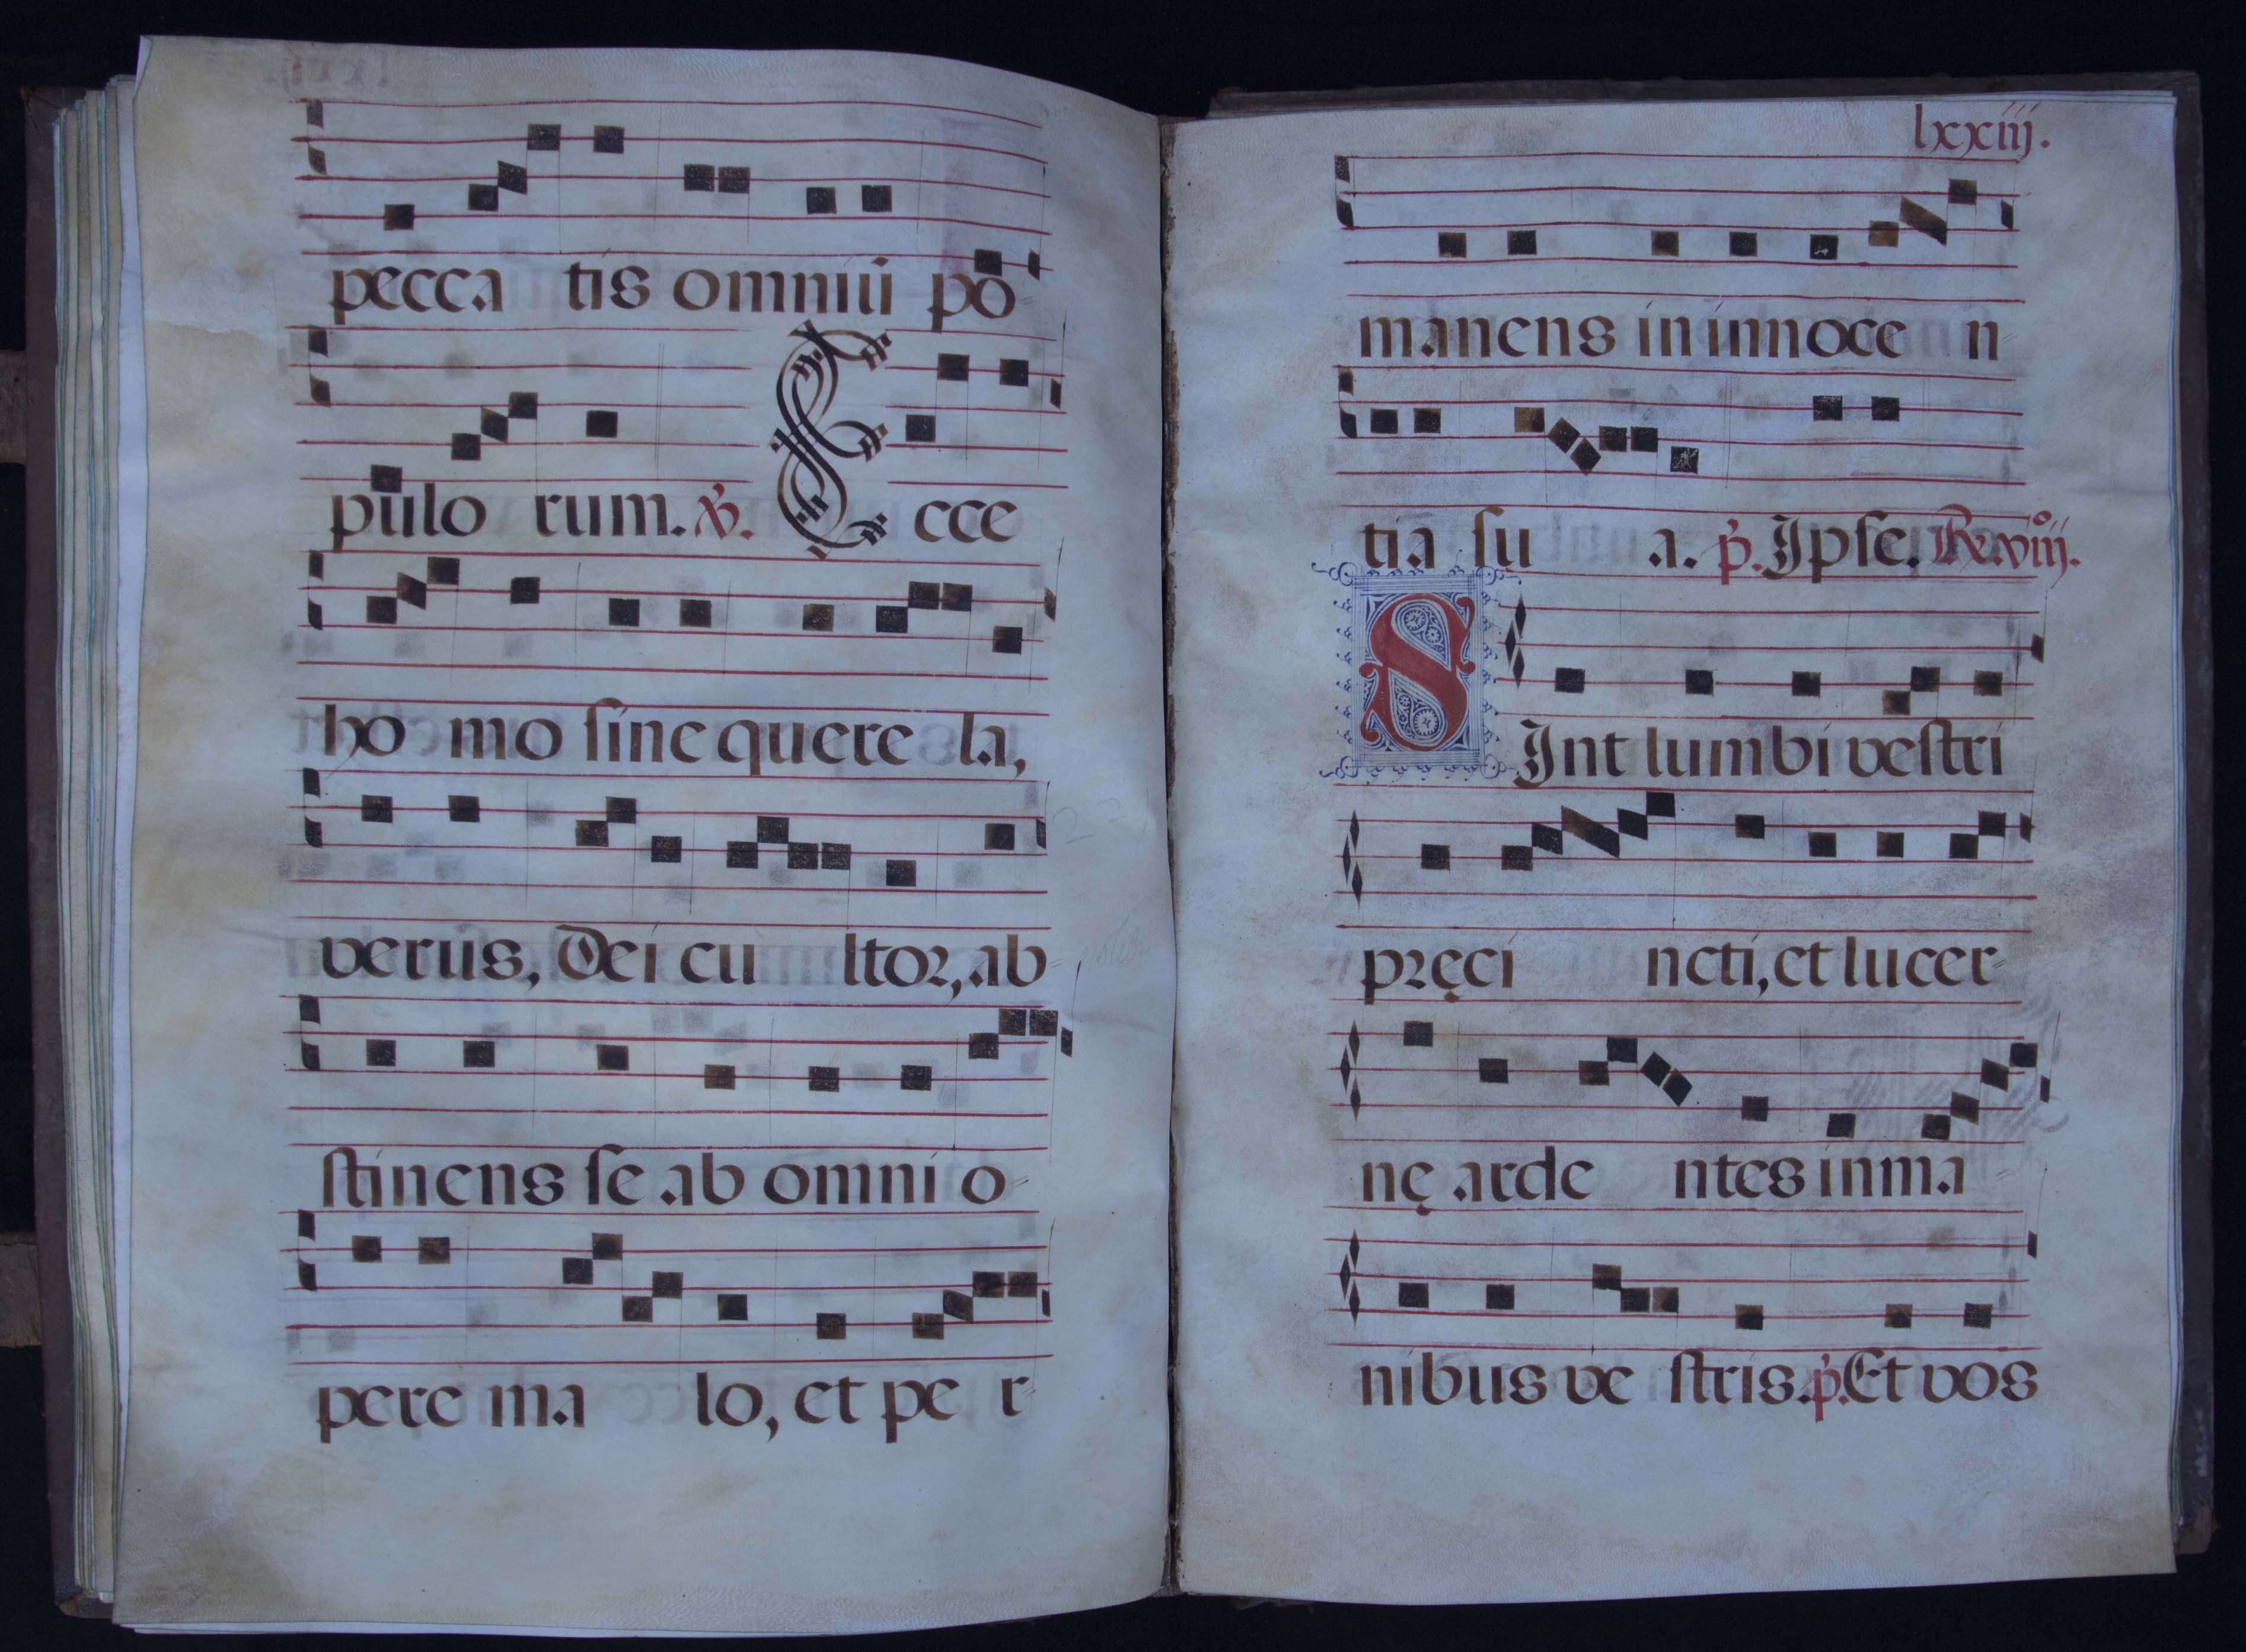 pecca tis omniũ po
pulo rum. ℣. Ecce
ho mo ſine quere la,
verus, Dei cu ltor, ab
ſtinens ſe ab omni o
pere ma lo, et pe r
lxxiij.
manens in innoce n
tia ſu a. p̓. Ipſe. ℟. viijº.
SInt lumbi veſtri
pręci ncti, et lucer
nę arde ntes in ma
nibus ve ſtris. p̓. Et vos